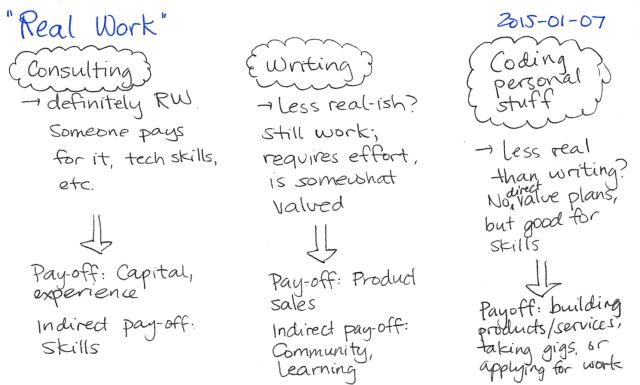 "Real Work"
2015-01-07
Consulting
→ definitely RW.
Someone pays
for it, tech skills,
etc.
Pay-off: Capital,
experience
Indirect pay-off:
Skills
Writing
→ Less real-ish?
Still work;
requires effort,
is somewhat
valued
Pay-off: Product
sales
Indirect pay-off:
Community,
Learning
Coding
personal
stuff
→ Less real
than writing?
No direct value plans,
but good for
skills
Payoff: building
products/services,
taking gigs, or
applying for work